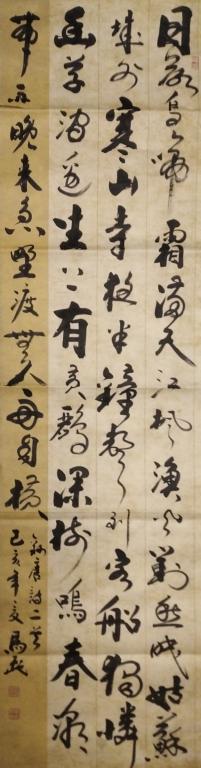 月落烏啼霜滿天江楓漁火對愁眠姑蘇
城外寒山寺夜半鐘聲到客船獨憐
幽草澗邊生上有黃鸝深樹鳴春潮
帶雨晚來急野渡無人舟自橫
錄唐詩二首
己亥年夏馬